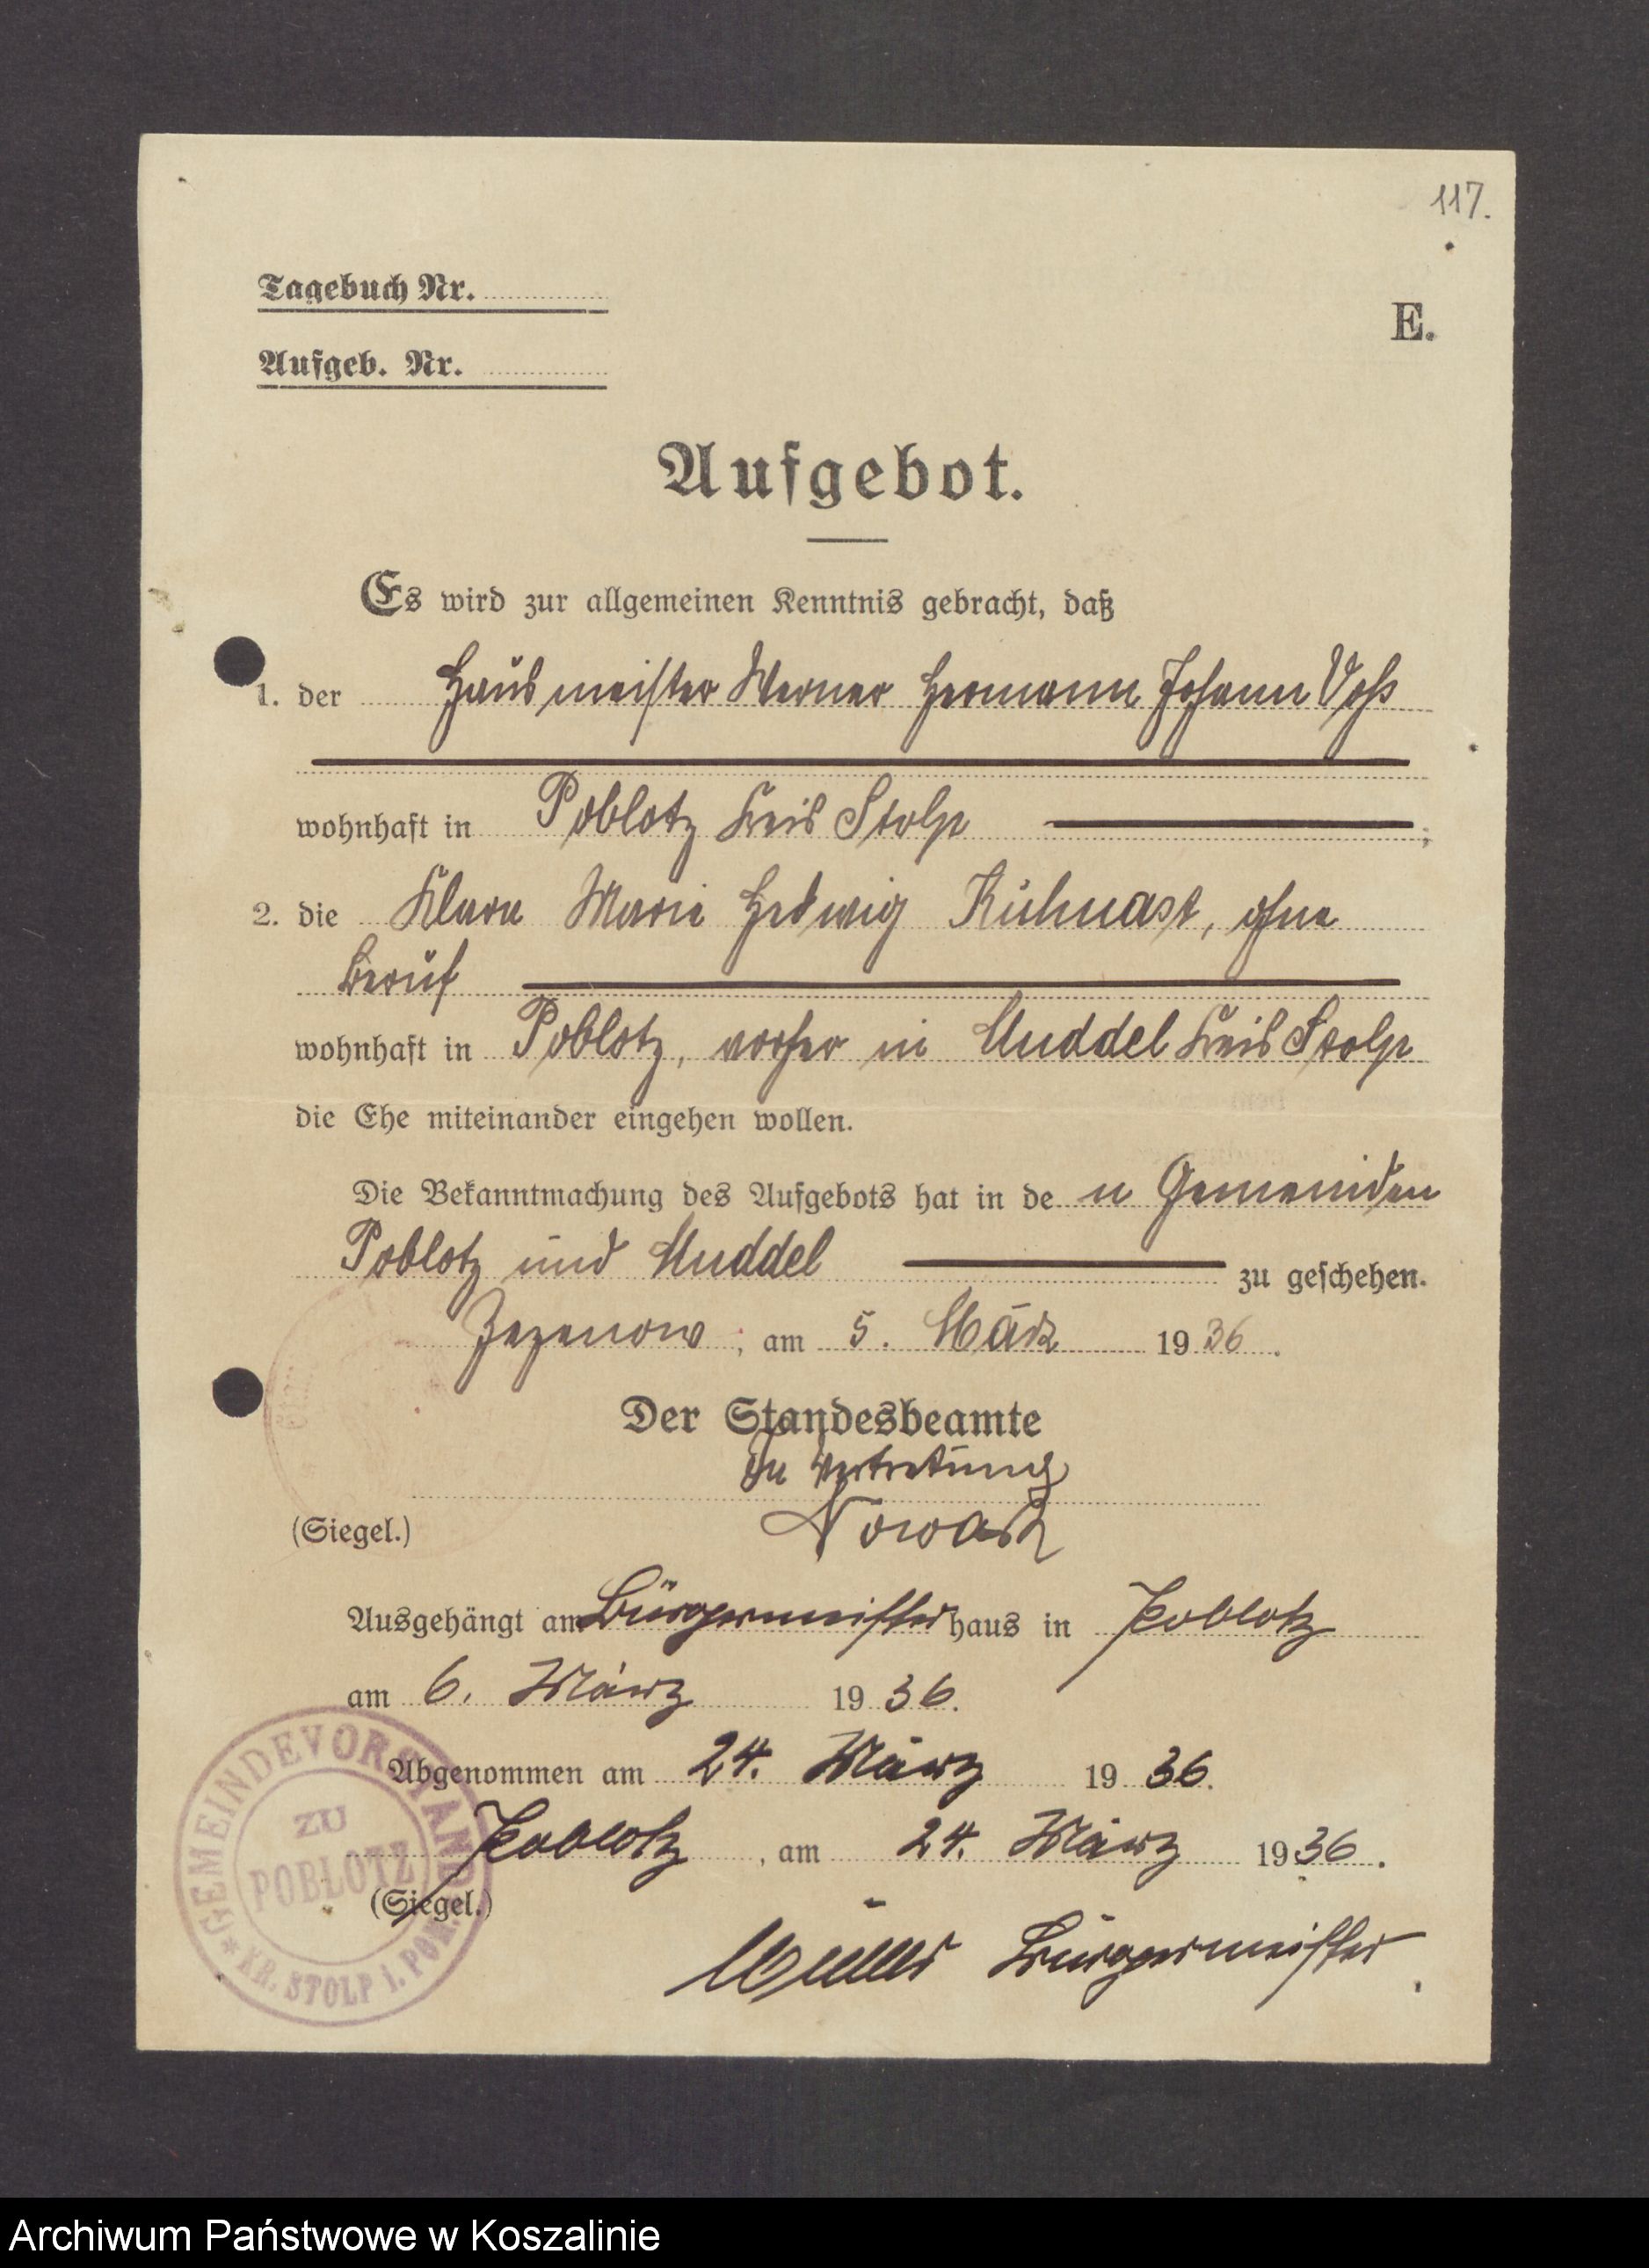 117.
Tagebuch Nr.
E.
Aufgeb. Nr.
Aufgebot.
Es wird zur allgemeinen Kenntnis gebracht, daß
1. der Hausmeister Werner Hermann Johann Voß
wohnhaft in Poblotz Kreis Stolp ;
2. die Klara Marie Hedwig Kühnast, ohne
Beruf
wohnhaft in Poblotz, vorher in Muddel Kreis Stolp
die Ehe miteinander eingehen wollen.
Die Bekanntmachung des Aufgebots hat in de n Gemeinden
Poblotz und Muddel zu geschehen.
Zezenow, am 5. März 1936.
Der Standesbeamte
In Vertretung
(Siegel.) Nowack
Ausgehängt am Bürgermeisterhaus in Poblotz
am 6. März 1936.
Abgenommen am 24. März 1936.
Poblotz, am 24. März 1936.
(Siegel.)
GEMEINDEVORSTAND
ZU
POBLOTZ
* KR. STOLP i. POM.
Müller Bürgermeister
Archiwum Państwowe w Koszalinie